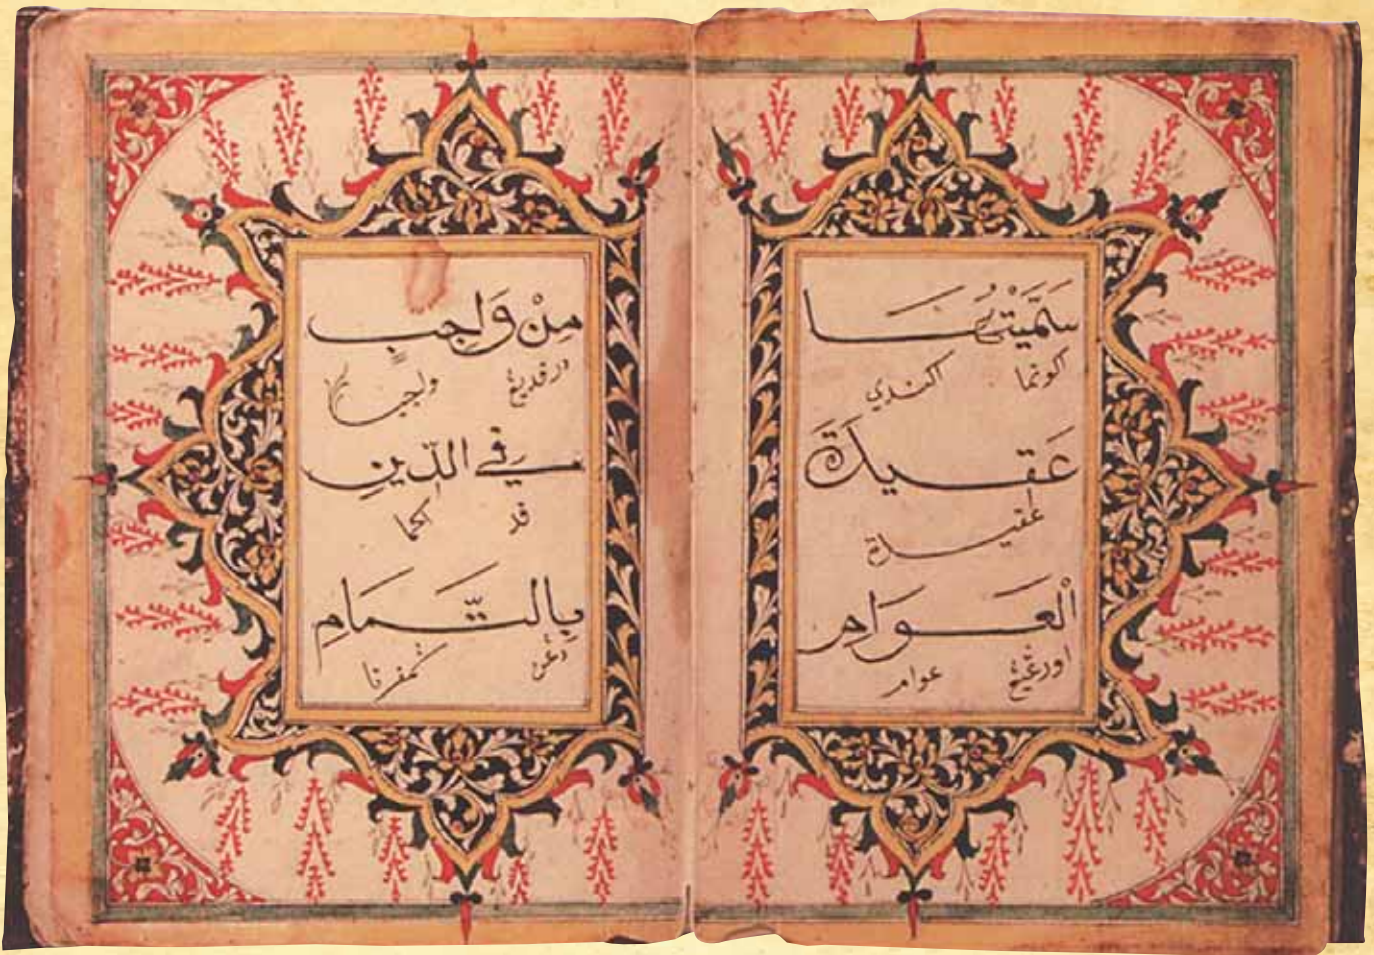 سَمَّيْتُهَا
اكونما اكندي
عَقِيدَةَ
عقيدة
الْعَوَامِ
اورڠيڠ عوام
مِنْ وَاجِبٍ
درفديڠ واجب
فِي الدِّينِ
فد
بِالتَّمَامِ
دڠن سمفرنا